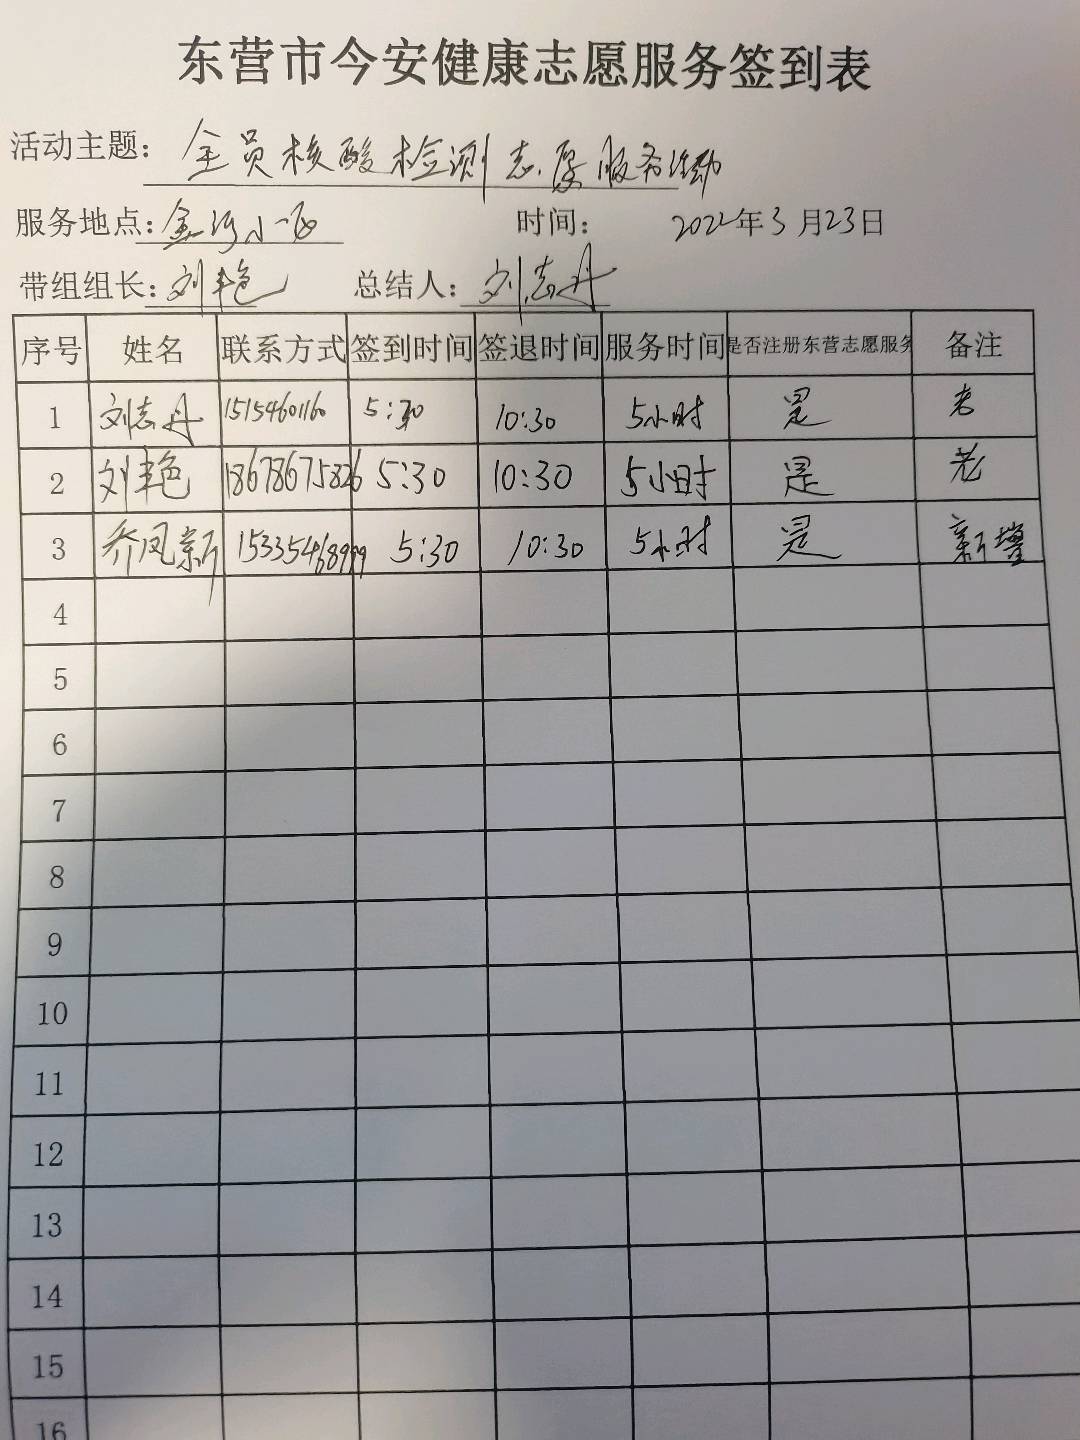 东营市今安健康志愿服务签到表
活动主题：全员核酸检测志愿服务活动
服务地点：金河小区 时间： 2022年3月23日
带组组长：刘艳 总结人：刘志丹
序号 姓名 联系方式 签到时间 签退时间 服务时间 是否注册东营志愿服务 备注
1 刘志丹 15154601160 5:30 10:30 5小时 是 老
2 刘艳 18678675826 5:30 10:30 5小时 是 老
3 乔凤新 15335468999 5:30 10:30 5小时 是 新增
4
5
6
7
8
9
10
11
12
13
14
15
16